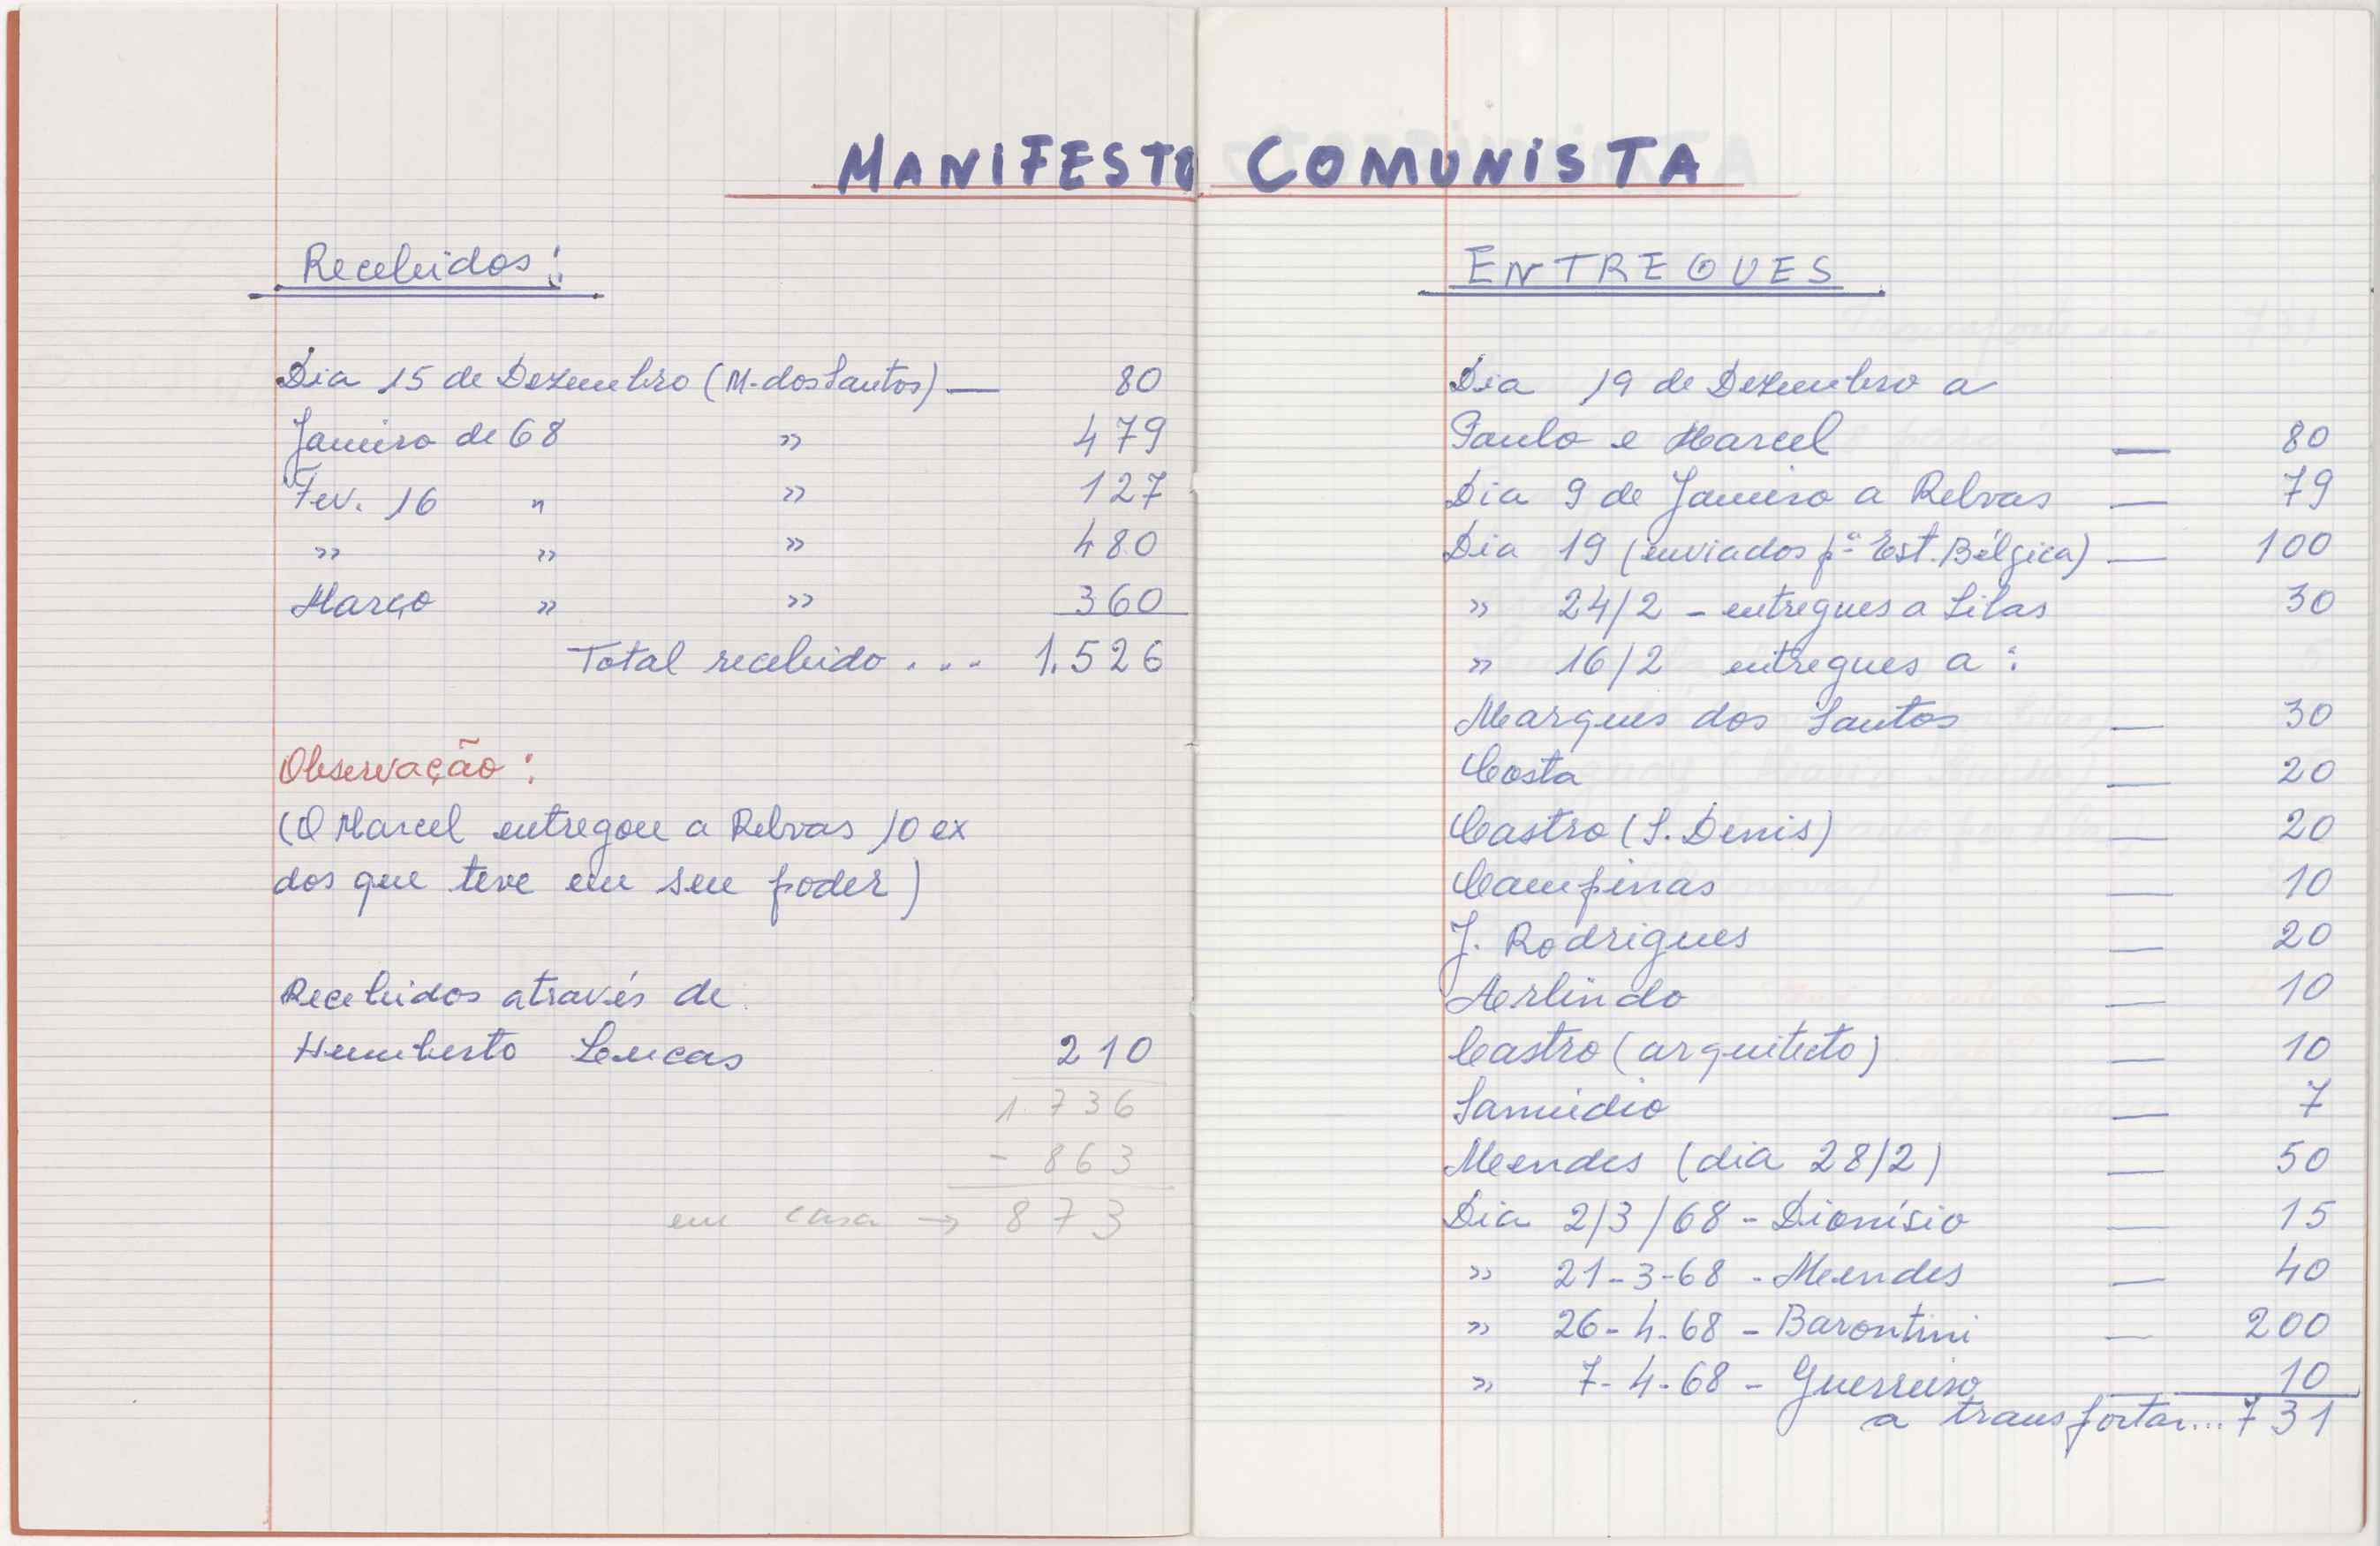 MANIFESTO COMUNISTA
Recebidos:
Dia 15 de Dezembro (M. dos Santos) — 80
Janeiro de 68 » 479
Fev. 16 " » 127
» » » 480
Março » » 360
Total recebido ... 1.526
Observação:
(O Marcel entregou a Relvas 10 ex
dos que teve em seu poder)
Recebidos através de
Humberto Lucas 210
1.736
- 863
em casa → 873
ENTREGUES
Dia 19 de Dezembro a
Paulo e Marcel — 80
Dia 9 de Janeiro a Relvas — 79
Dia 19 (enviados pª Est. Bélgica) — 100
» 24/2 - entregues a Silas 30
» 16/2 entregues a:
Marques dos Santos — 30
Costa — 20
Castro (S. Denis) — 20
Campinas — 10
J. Rodrigues — 20
Arlindo — 10
Castro (arquitecto) — 10
Samúdio — 7
Mendes (dia 28/2) — 50
Dia 2/3/68 - Dionísio — 15
» 21-3-68 - Mendes — 40
» 26-4-68 - Barontini — 200
» 7-4-68 - Guerreiro — 10
a transportar... 731